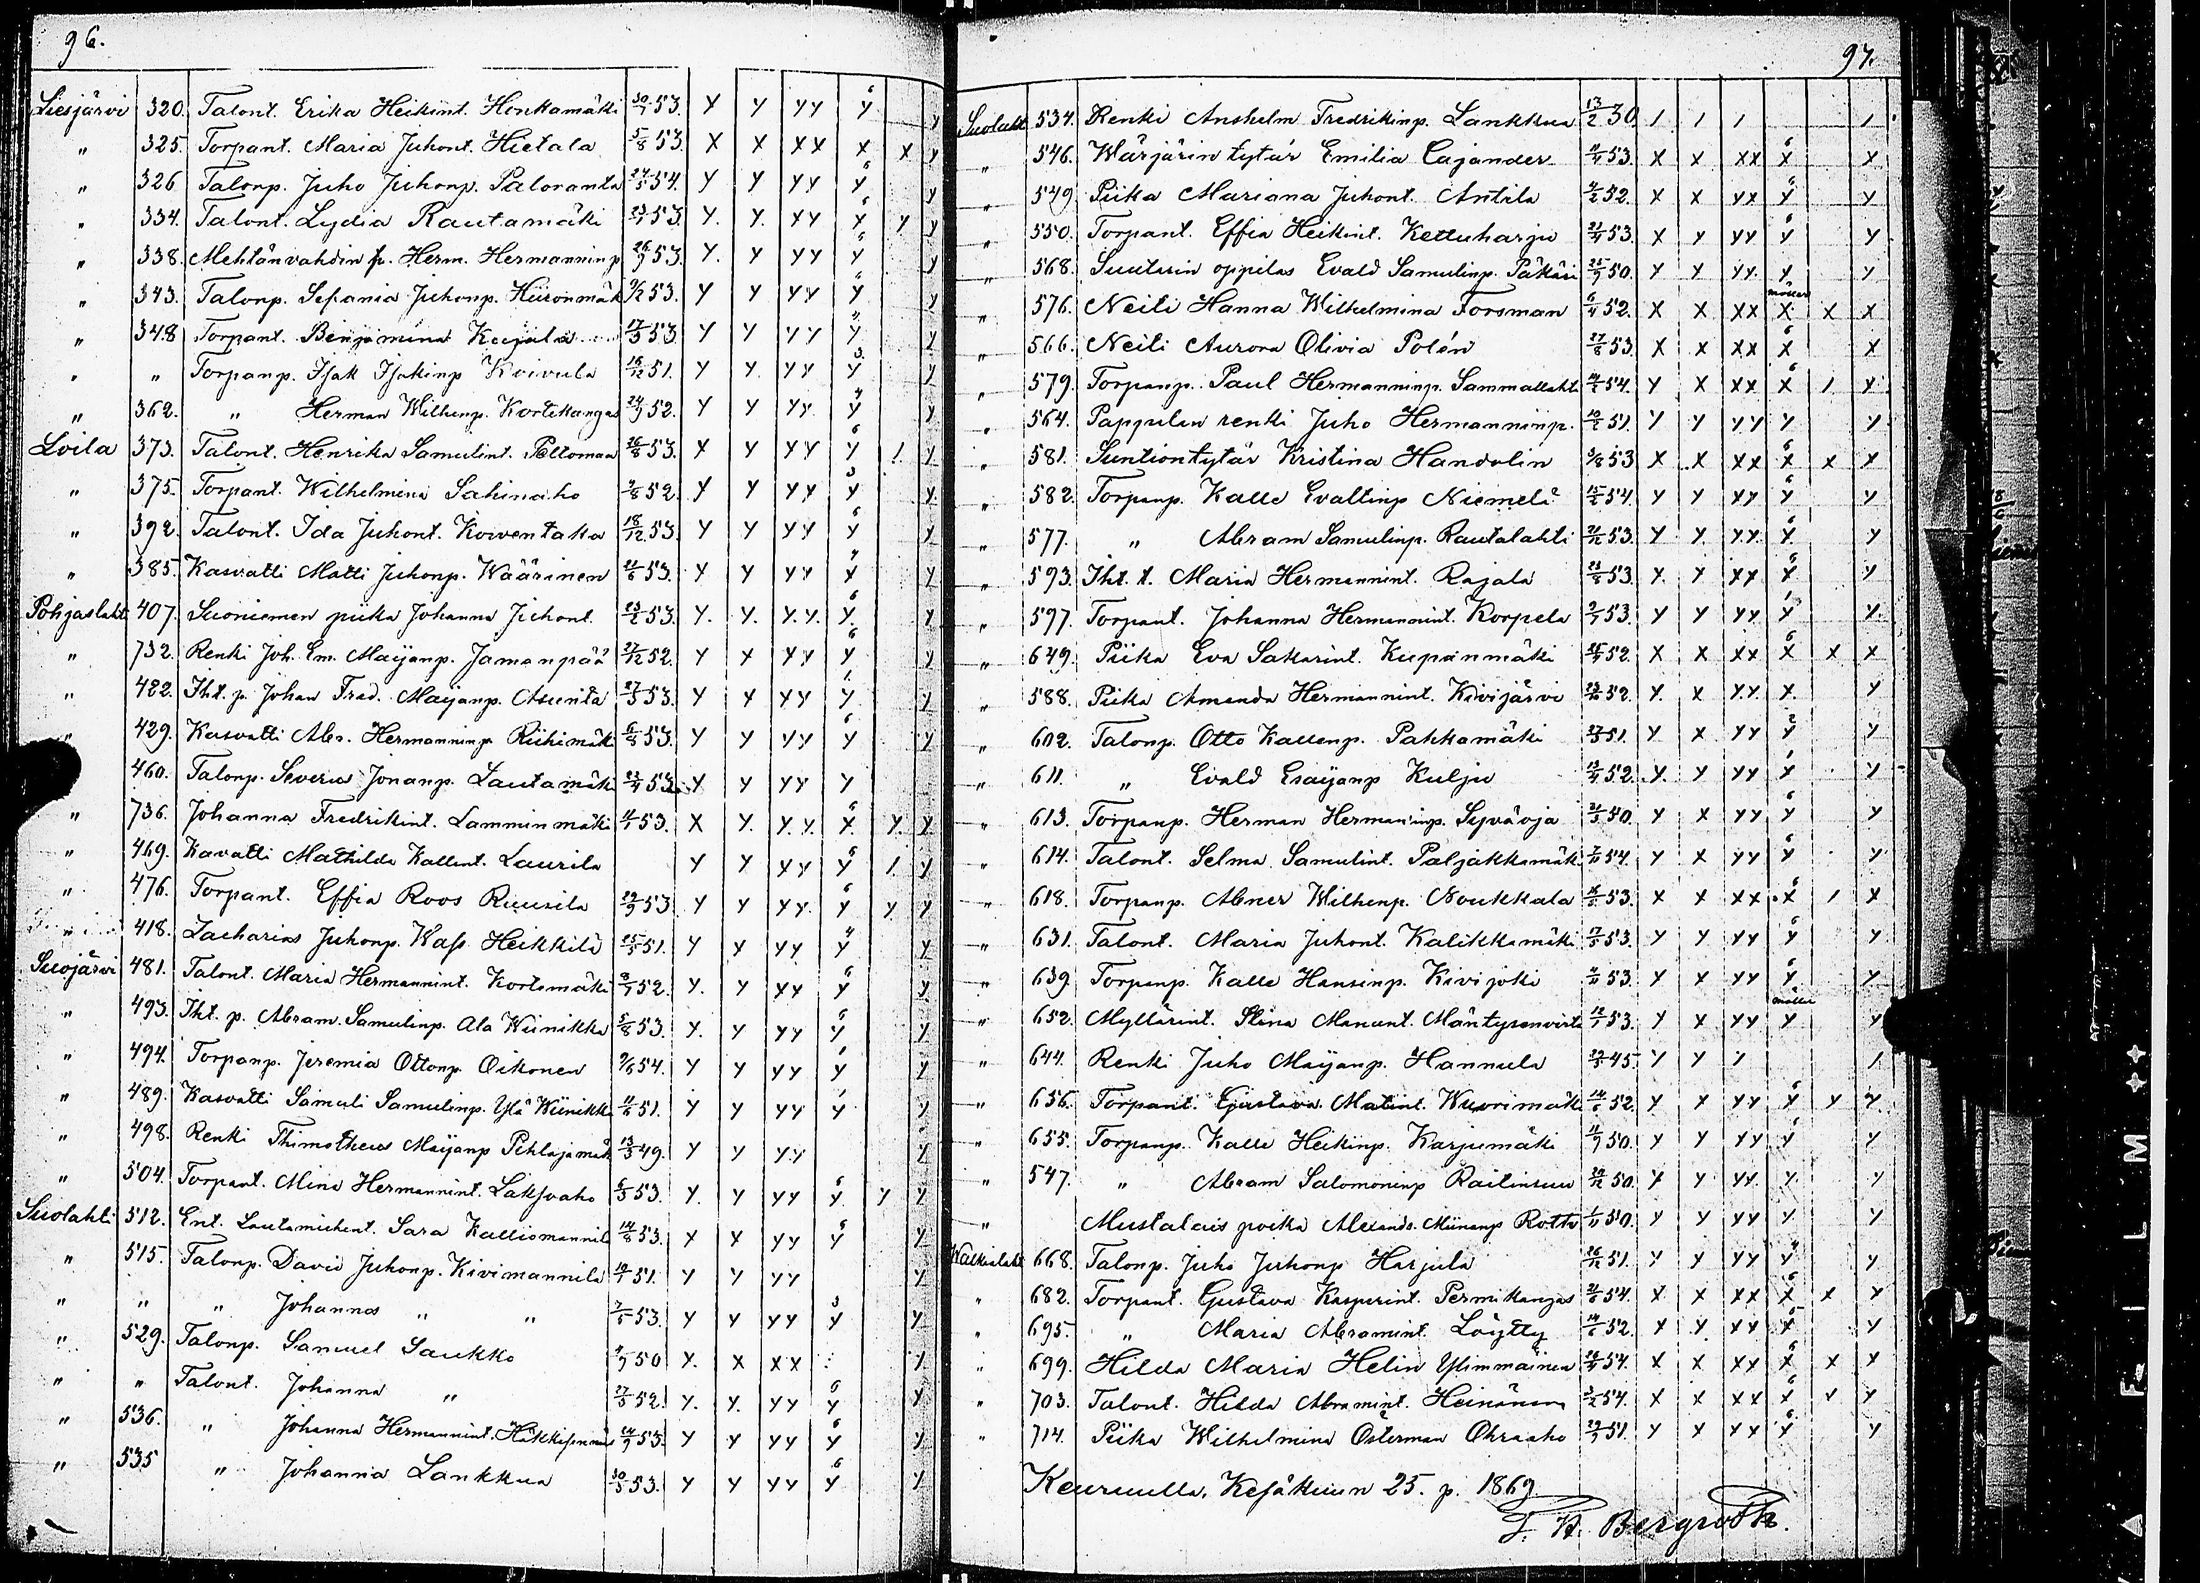 96.
Liesjärvi 320. Talont. Erika Heikint. Honkamäki 30/7 53. X Y YY 6 Y Y
" 325. Torpant. Maria Juhont. Hietala 5/8 53. X X XX X X Y
" 326 Talonp. Juho Juhonp. Paloranta 24/5 54. Y Y YY 6 Y Y
" 334. Talont. Lydia Rautamäki 53. Y. Y. XY 6 Y Y Y
" 338. Mehtänvahdin p. Herm. Hermanninp 26/9 53. Y. Y YY 6 Y Y
" 343. Talonp. Sefania Juhonp. Hiironmäk 9/12 53. Y Y YY Y Y
" 348 Torpant. Benjamina Kujala 17/3 53. Y Y YY Y Y
" " Torpanp. Isak Isakinp Koivula 16/12 51. Y Y. YY 3 Y Y
" 362. " Herman Wilhenp. Kortekangas 24/9 52. Y Y YY. 4 Y Y
Loila 373. Talont. Henrika Samulint. Peltomaa 26/8 53. X Y YY 6 Y 1 Y
" 375. Torpant. Wilhelmina Sahinaho 52. Y Y YY 3 Y Y
" 392. Talont. Ida Juhont. Koiventaka 18/12 53. Y Y YY 6 Y Y
" 385. Kasvatti Matti Juhonp. Wäärinen 53. Y Y YY 4 Y Y
Pohjaslaht 407. Suoniemen piika Johanna Juhont. 23/2 53. Y. Y. Y.Y. 6 Y Y
" 732. Renki Joh. Em. Maijanp. Jamanpää 21/12 52. Y X YY 6 Y Y
" 422. Iht. p. Johan Fred. Maijanp. Asunta 27/3 53. Y Y YY 1 Y Y
" 429. Kasvatti Abr. Hermanninp. Riihimäk 6/8 53. Y Y YY 6 Y Y
460. Talonp. Severus Jonanp. Lautamäk 23/4 53. Y Y YY Y
" 736. Johanna Fredrikint. Lamminmäki 53. X Y. Y.Y. 6 Y. Y. Y
" 469. Kavatti Mathilda Kallent. Laurila Y Y YY 6 Y 1 Y
" 476. Torpant. Effia Roos Ruusila 29/9 53 Y Y YY. 6 Y Y Y
" 418. Zacharias Juhonp. Kass. Heikkilä 25/5 51. Y Y YY 4 Y Y
Suojärvi 481. Talont. Maria Hermannint. Kortemäki 8/7 52. Y. Y YY 6 Y Y
" 493. Iht. p. Abram. Samulinp. Ala Wiinikka 5/8 53. Y. Y YY 6 Y Y
" 494. Torpanp. Jeremia Ottonp. Oikonen 54. Y Y YY 6 Y Y
" 489. Kasvatti Samuli Samulinp. Ylä Wiinikk 11/6 51. Y Y YY 1 Y Y
" 498. Renki Thimotheus Maijanp Pihlajamäk 13/3 49. Y Y YY Y
" 504. Torpant. Mina Hermannint. Laksvaho 6/3 53. Y. Y YY 6 Y. Y Y
Suolahti 512. Ent. Lautamiehent. Sara Kalliomannil 14/8 53. X X YY 6 Y Y
" 515. Talonp. David Juhonp. Kivimannila 51. Y Y YY Y
" " " Johannas " " 7/5 53. Y Y YY 3 Y Y
" 529. Talonp. Samuel Saukko 50 Y. X XX Y
" " Talont. Johanna " 27/5 52. Y. Y. YY 6 Y Y
" 536. " Johanna Hermannint. 24/9 53. Y Y YY 6 Y Y
" 535 " Johanna Lankkua 30/5 53. Y Y YY 6 Y Y
97.
Suolaht 534. Renki Anshelm Fredrikinp. Lankkua 13/2 30 1 1 1 1
" 546. Wärjärin tytär Emilia Cajander 53. X X XX 6 X X
" 549 Piika Mariana Juhont. Antila 52. X X YX 6 Y Y
" 550. Torpant. Effia Heikint. Kettuharju 53. X Y YY 6 Y Y
" 568. Suutarin oppilas Evald Samulinp. Päkäri 25/9 50. Y Y YY. Y Y
" 576. Neiti Hanna Wilhelmina Forsman 6/4 52. X X XX X X X
" 566. Neiti Aurora Olivia Polén 27/8 53. X X XX 6 X X
" 579. Torpanp. Paul Hermanninp. Sammallaht 54. Y X XX 6 X 1 X
" 564. Pappilan renki Juho Hermanninp. 51. Y Y YY Y Y
" 581. Suntiontytär Kristina Handolin 5/8 53 X X XX 6 X X X
" 582. Torpanp. Kalle Evaltinp Niemelä 15/2 54 Y Y XY 6 Y Y
" 577. " Abram Samulinp. Rautalahti 53. Y Y. Y.Y. 6 Y. Y
" 593. Iht. t. Maria Hermannint. Rajala 53. Y. Y XX. 6 X Y
" 597. Torpant. Johanna Hermannint. Korpela 53. Y Y YY 1 Y Y.
" 649. Piika Eva Sakarint. Kupanmäki 52. X X XX 6 X X X
" 588. Piika Amanda Hermannint. Kivijärvi 52. Y. X YY. X. Y
" 602. Talonp. Otto Kallenp. Pahkamäki 51. Y X YY 2 Y Y
" 611. " Evald Esaijanp Kulju 52. Y Y YY 1 Y Y
" 613. Torpanp. Herman Hermaninp. Syväoja 50. Y X YY 6 Y Y
" 614. Talont. Selma Samulint. Paljakkamäk 54. Y X YY 6 Y Y
" 618. Torpanp. Abner Wilhenp. Noukkala 53. X X XX 6 X 1 X
" 631. Talont. Maria Juhont. Kalikkamäki 53. Y Y YY 6 Y Y
" 639. Torpanp. Kalle Hansinp. Kivijoki 53. Y X YY 6 Y Y
" 652. Myllärint. Stina Manunt. Mäntysenvirta 53. Y X YY Y Y
" 644. Renki Juho Maijanp. Hannula 45. Y Y 1 1
" 656. Torpant. Gustava Matint. Wuorimäk 14/6 52. Y X YY 6 Y Y Y
" 655. Torpanp. Kalle Heikinp. Karjumäki 50. Y Y YY 1 Y Y
" 547. " Abram Salomoninp Railinsuu 50. Y Y YY. Y. Y
" Mustalais poika Alexand. Miinanp Rotto 50. Y Y YY Y Y
Walkialaht 668. Talonp. Juho Juhonp Harjula 26/12 51. Y Y YY 4 Y Y
" 682. Torpant. Gustava Kasperint. Permikangas 54. X X XX 6 X X Y
" 695. " Maria Abramint. Löytty 14/6 52. Y Y XY 5 X Y
" 699. Hilda Maria Helin Ylimmäinen 54. X X XX 6 X X X
" 703. Talont. Hilda Abramint. Heinänen 54. X X XX 6 X Y Y
" 714. Piika Wilhelmina Österman Ohraaho 51. Y X YY 6 Y Y
Keuruulla, Kesäkuun 25. p. 1869
F. W. Bergroth.
FILM